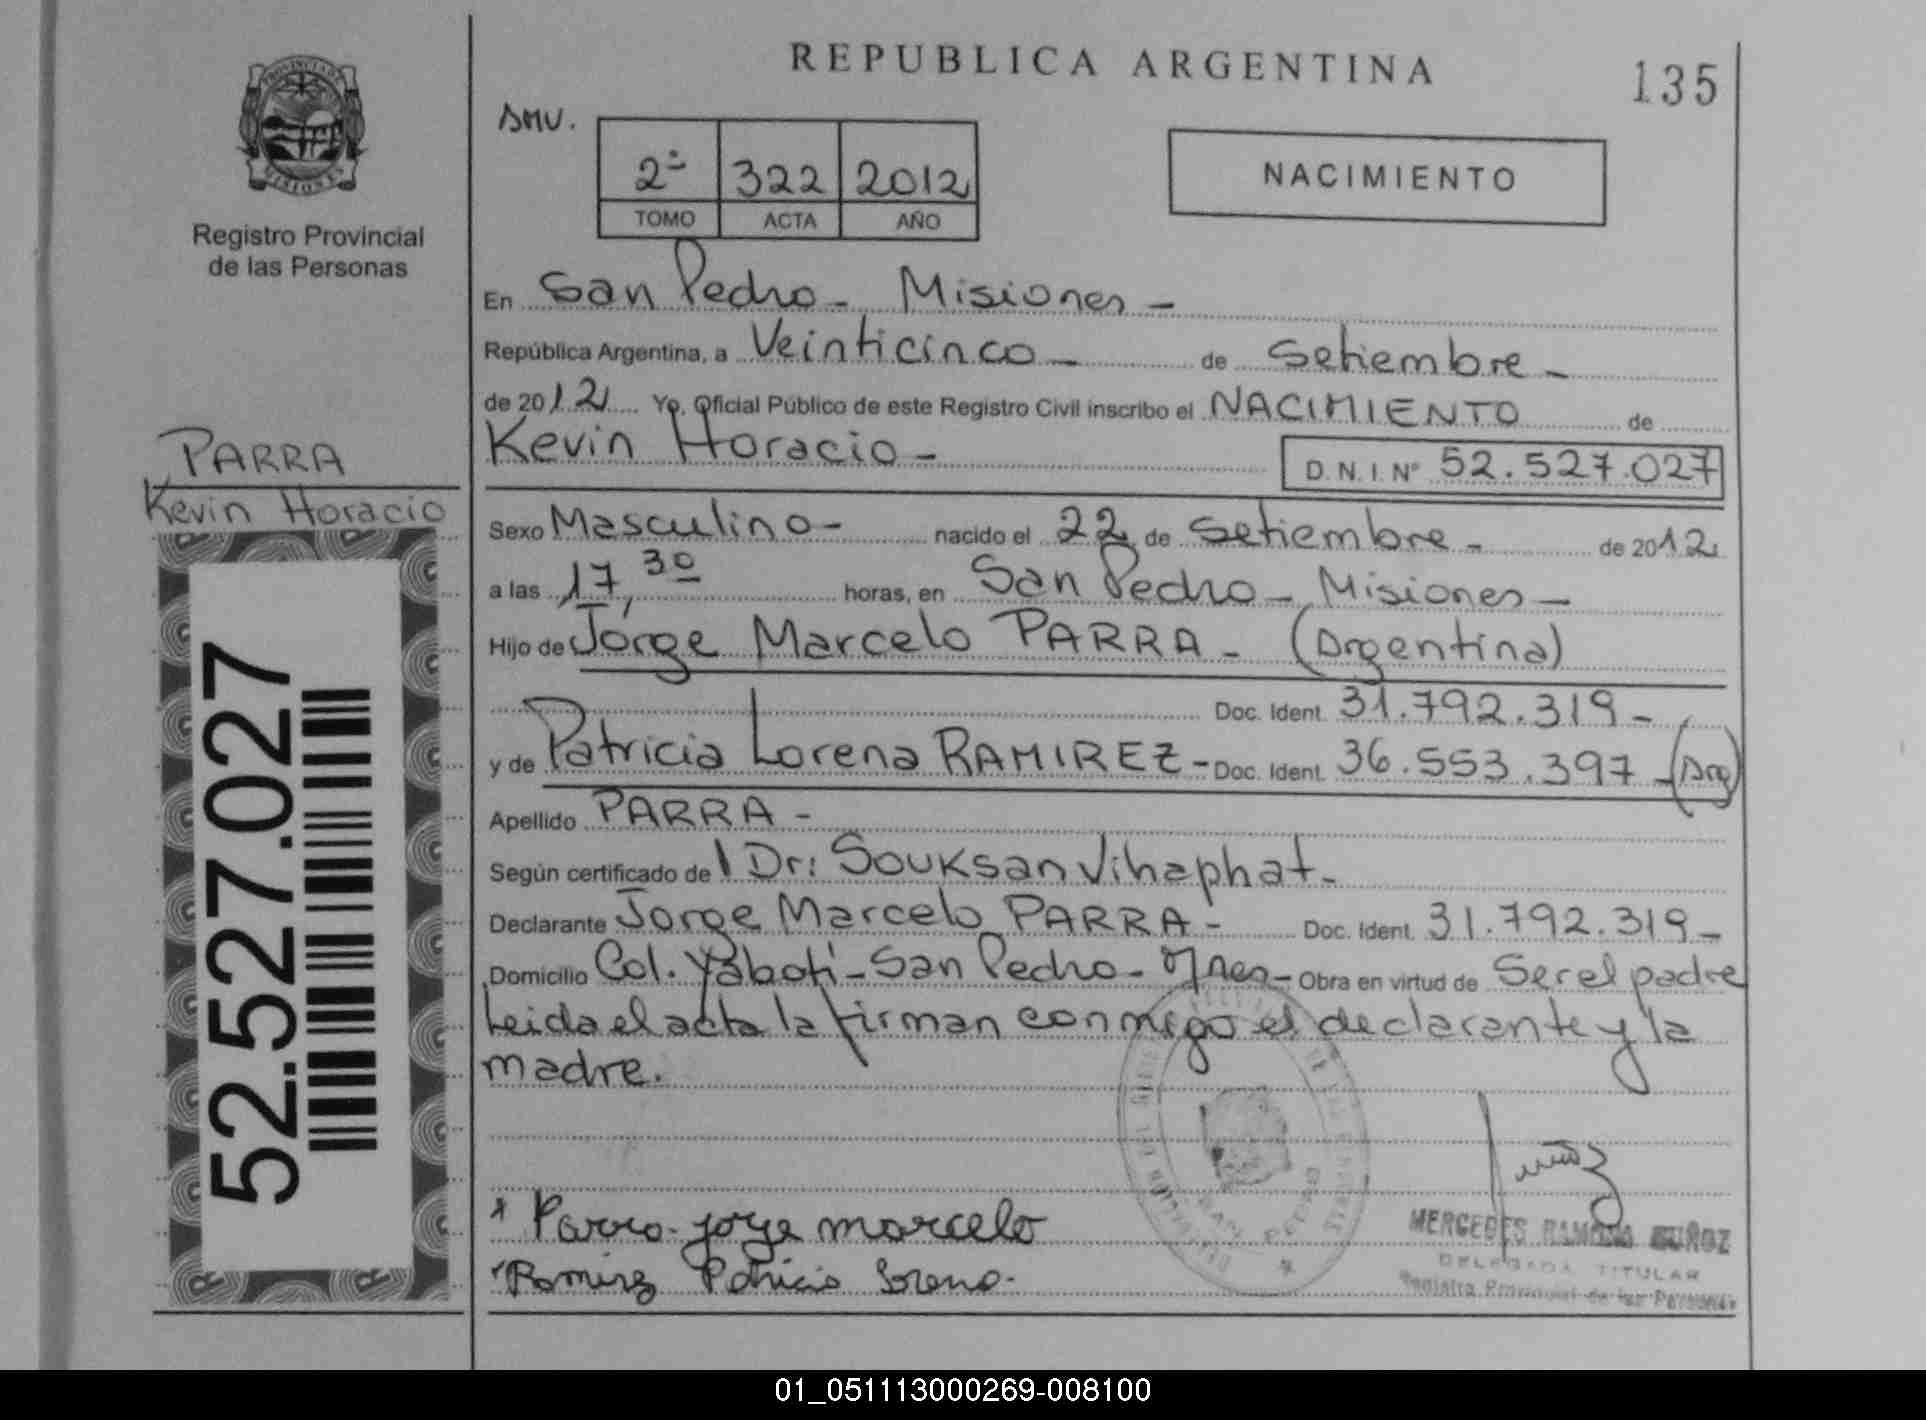 REPUBLICA ARGENTINA
135
PROVINCIA DE
MISIONES
Registro Provincial
de las Personas
SMV.
2º 322 2012
TOMO ACTA AÑO
NACIMIENTO
En San Pedro - Misiones -
República Argentina, a Veinticinco - de Setiembre -
de 2012 Yo, Oficial Público de este Registro Civil inscribo el NACIMIENTO de
Kevin Horacio -
D.N.I. Nº 52.527.027
PARRA
Kevin Horacio
52.527.027
Sexo Masculino - nacido el 22 de Setiembre - de 2012
a las 17,30 horas, en San Pedro - Misiones -
Hijo de Jorge Marcelo PARRA - (Argentina)
Doc. Ident. 31.792.319 -
y de Patricia Lorena RAMIREZ - Doc. Ident. 36.553.397 - (Arg)
Apellido PARRA -
Según certificado del Dr: Souksan Vihaphat -
Declarante Jorge Marcelo PARRA - Doc. Ident. 31.792.319 -
Domicilio Col. Yabotí - San Pedro - Mnes - Obra en virtud de Ser el padre
Leida el acta la firman conmigo el declarante y la
madre.
Parra Jorge marcelo
Ramirez Patricia Lorena
SAN PEDRO
MERCEDES RAMONA MUÑOZ
DELEGADA TITULAR
Registro Provincial de las Personas
01_051113000269-008100